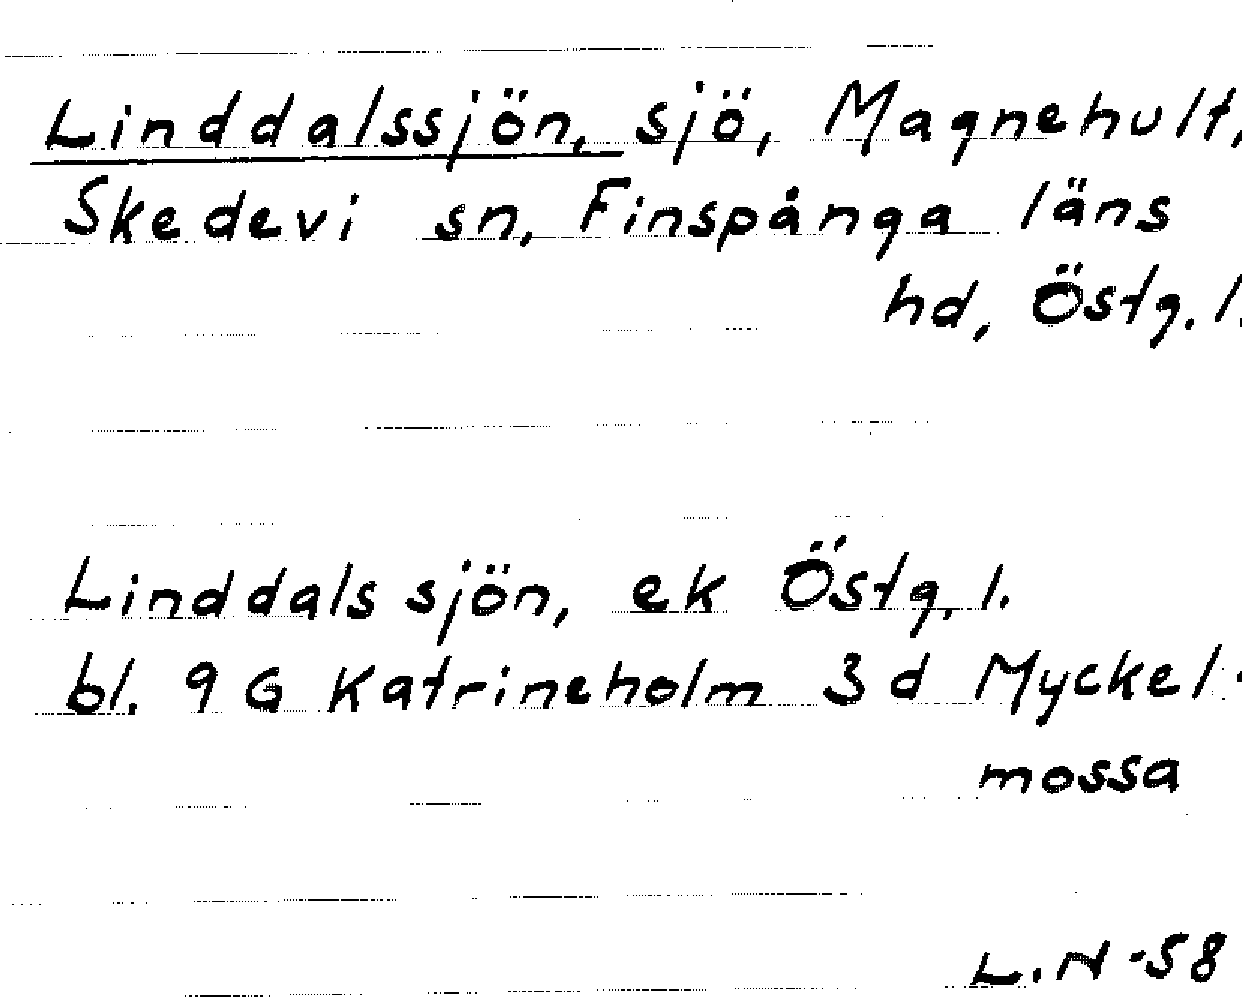 Linddalssjön, sjö, Magnehult,
Skedevi sn, Finspånga läns
hd, Östg. l.
Linddalssjön, ek Östg. l.
bl. 9 G Katrineholm 3 d Myckel-
mossa
L.N -58